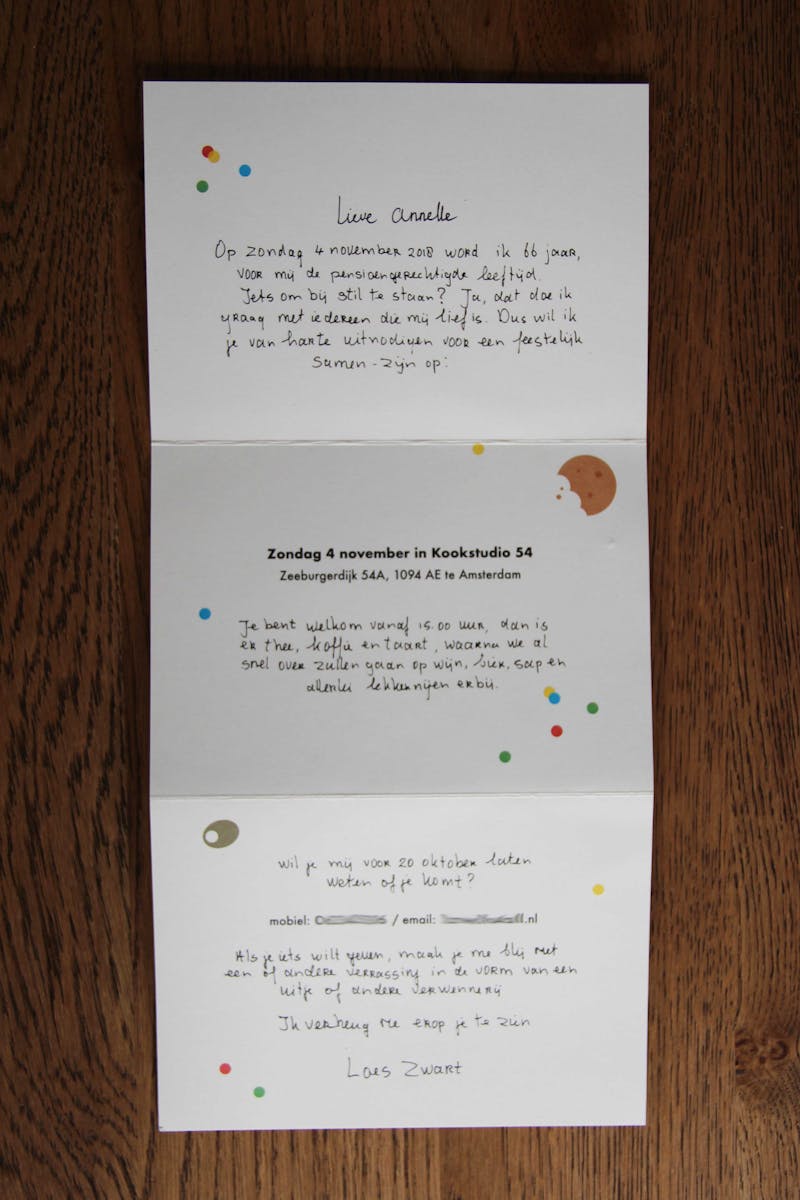 Lieve Annelle
Op zondag 4 november 2018 word ik 66 jaar,
voor mij de pensioengerechtigde leeftijd.
Iets om bij stil te staan? Ja, dat doe ik
graag met iedereen die mij lief is. Dus wil ik
je van harte uitnodigen voor een feestelijk
samen-zijn op:
Zondag 4 november in Kookstudio 54
Zeeburgerdijk 54A, 1094 AE te Amsterdam
Je bent welkom vanaf 15.00 uur, dan is
er thee, koffie en taart, waarna we al
snel over zullen gaan op wijn, bier, sap en
allerlei lekkernijen erbij.
Wil je mij voor 20 oktober laten
weten of je komt?
mobiel: / email: .nl
Als je iets wilt geven, maak je me blij met
een of andere verrassing in de vorm van een
uitje of andere verwennerij
Ik verheug me erop je te zien
Loes Zwart